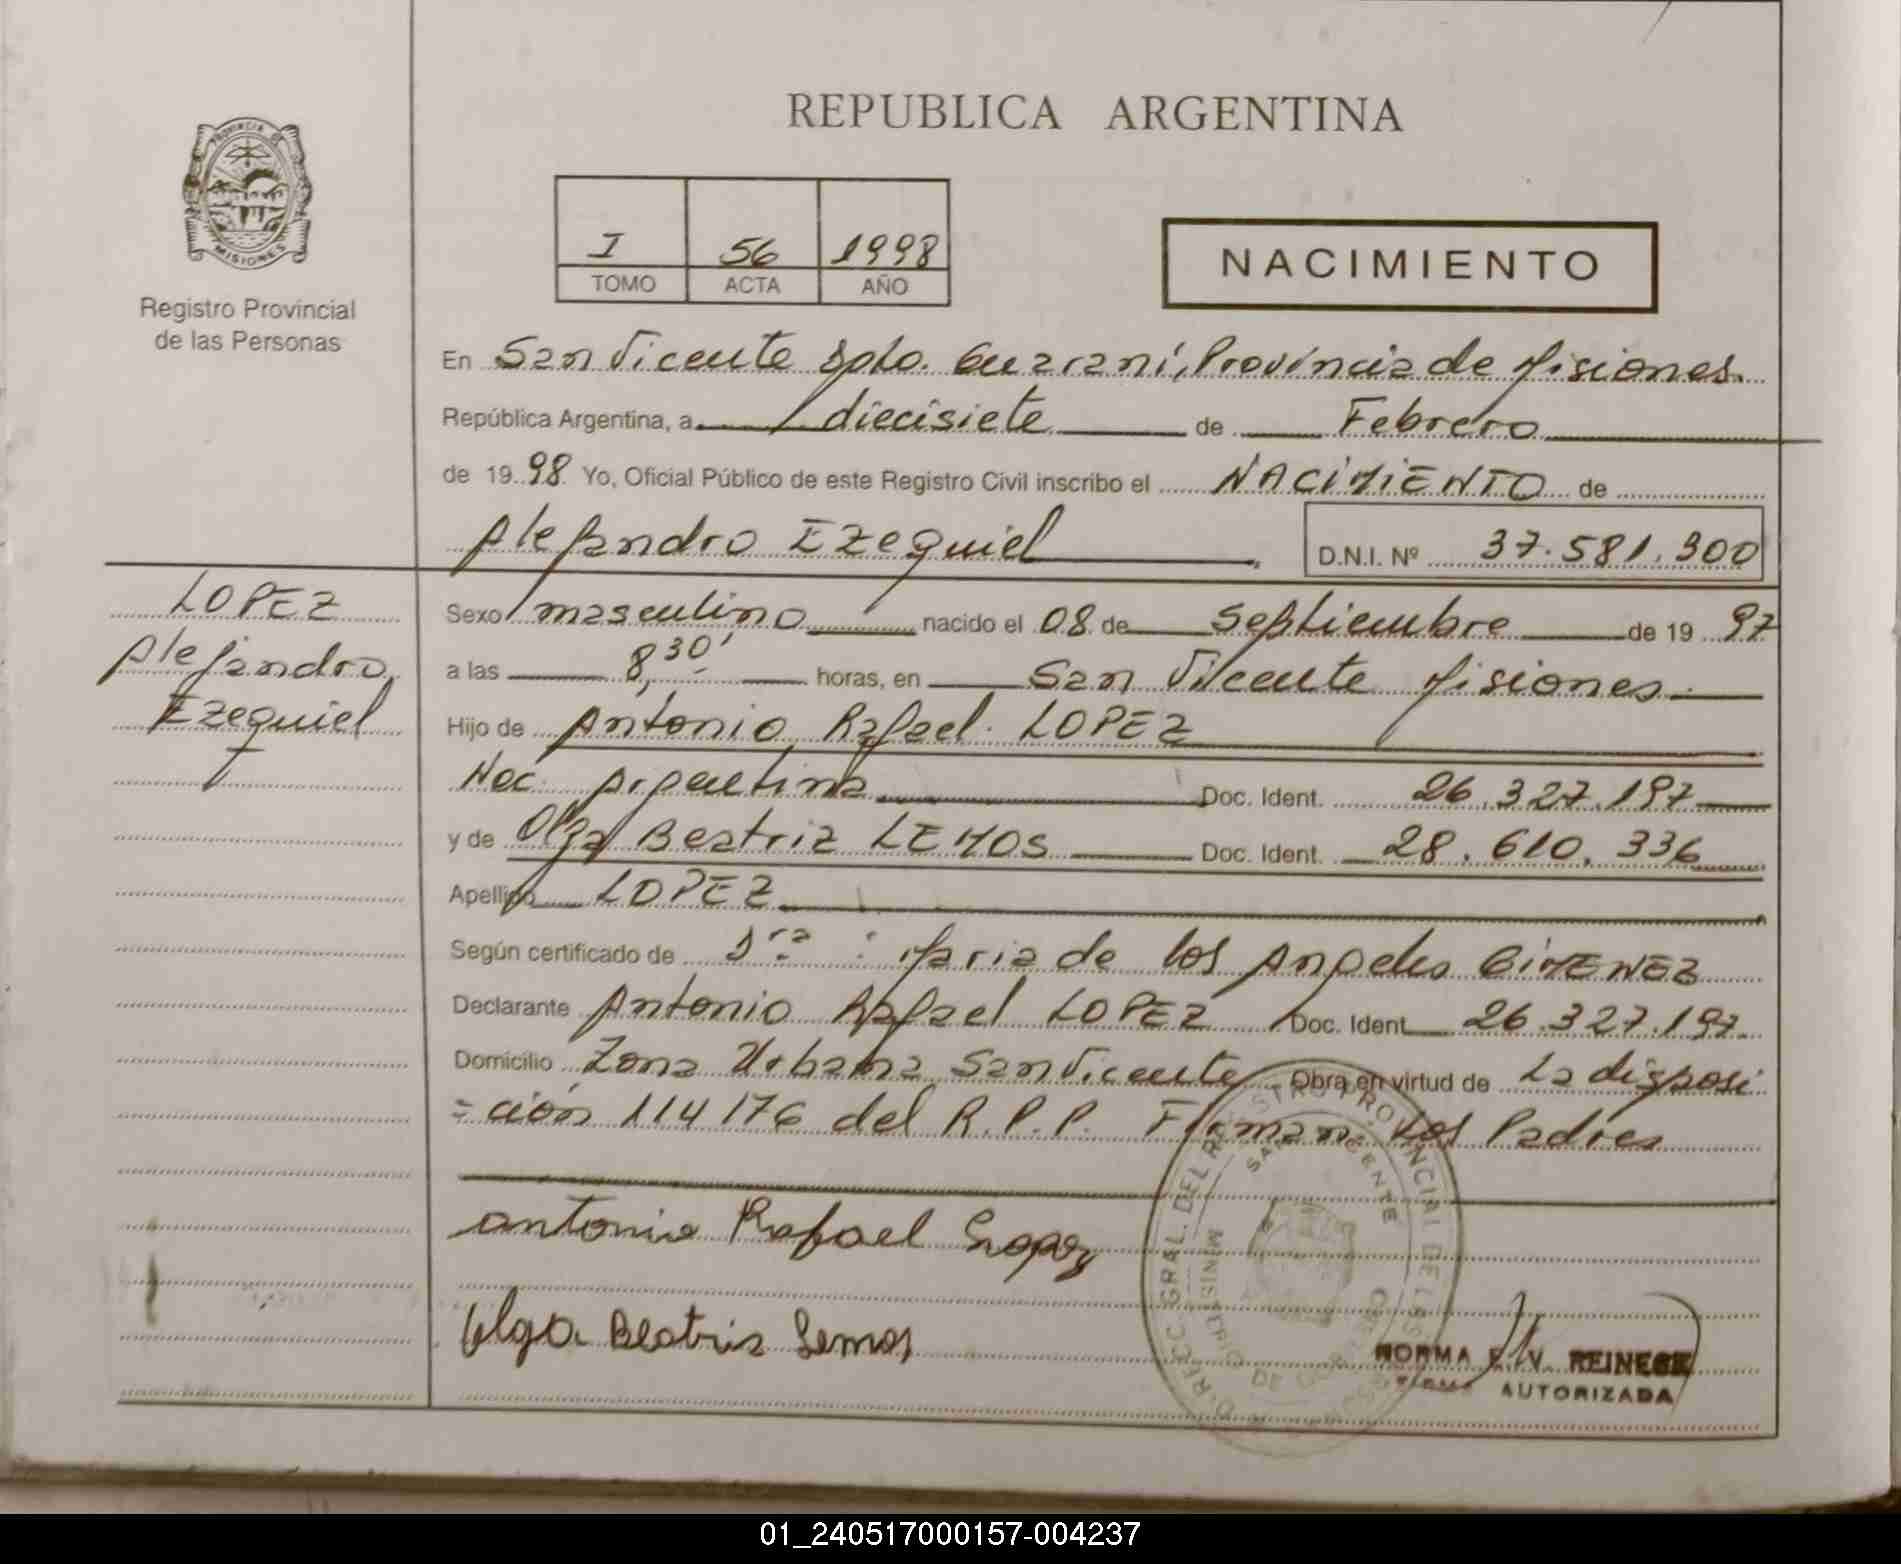 REPUBLICA ARGENTINA
PROVINCIA DE
MISIONES
Registro Provincial
de las Personas
I 56 1998
TOMO ACTA AÑO
NACIMIENTO
En San Vicente Dpto. Guarani, Provincia de Misiones.
República Argentina, a diecisiete de Febrero
de 1998 Yo, Oficial Público de este Registro Civil inscribo el NACIMIENTO de
Alejandro Ezequiel D.N.I. Nº 37.581.300
LOPEZ
Alejandro
Ezequiel
Sexo masculino nacido el 08 de Septiembre de 1997
a las 8,30' horas, en San Vicente Misiones
Hijo de Antonio Rafael LOPEZ
Nac. Argentina Doc. Ident. 26.327.197
y de Olga Beatriz LEMOS Doc. Ident. 28.610.336
Apellido LOPEZ
Según certificado de Sra: Maria de los Angeles GIMENEZ
Declarante Antonio Rafael LOPEZ Doc. Ident. 26.327.197.
Domicilio Zona Urbana San Vicente Obra en virtud de La disposi
=ción 114176 del R.P.P. Firman Los Padres
Antonio Rafael Lopez
Olga Beatriz Lemos
SAN VICENTE
NORMA E. V. REINESE
FIRMA AUTORIZADA
01_240517000157-004237